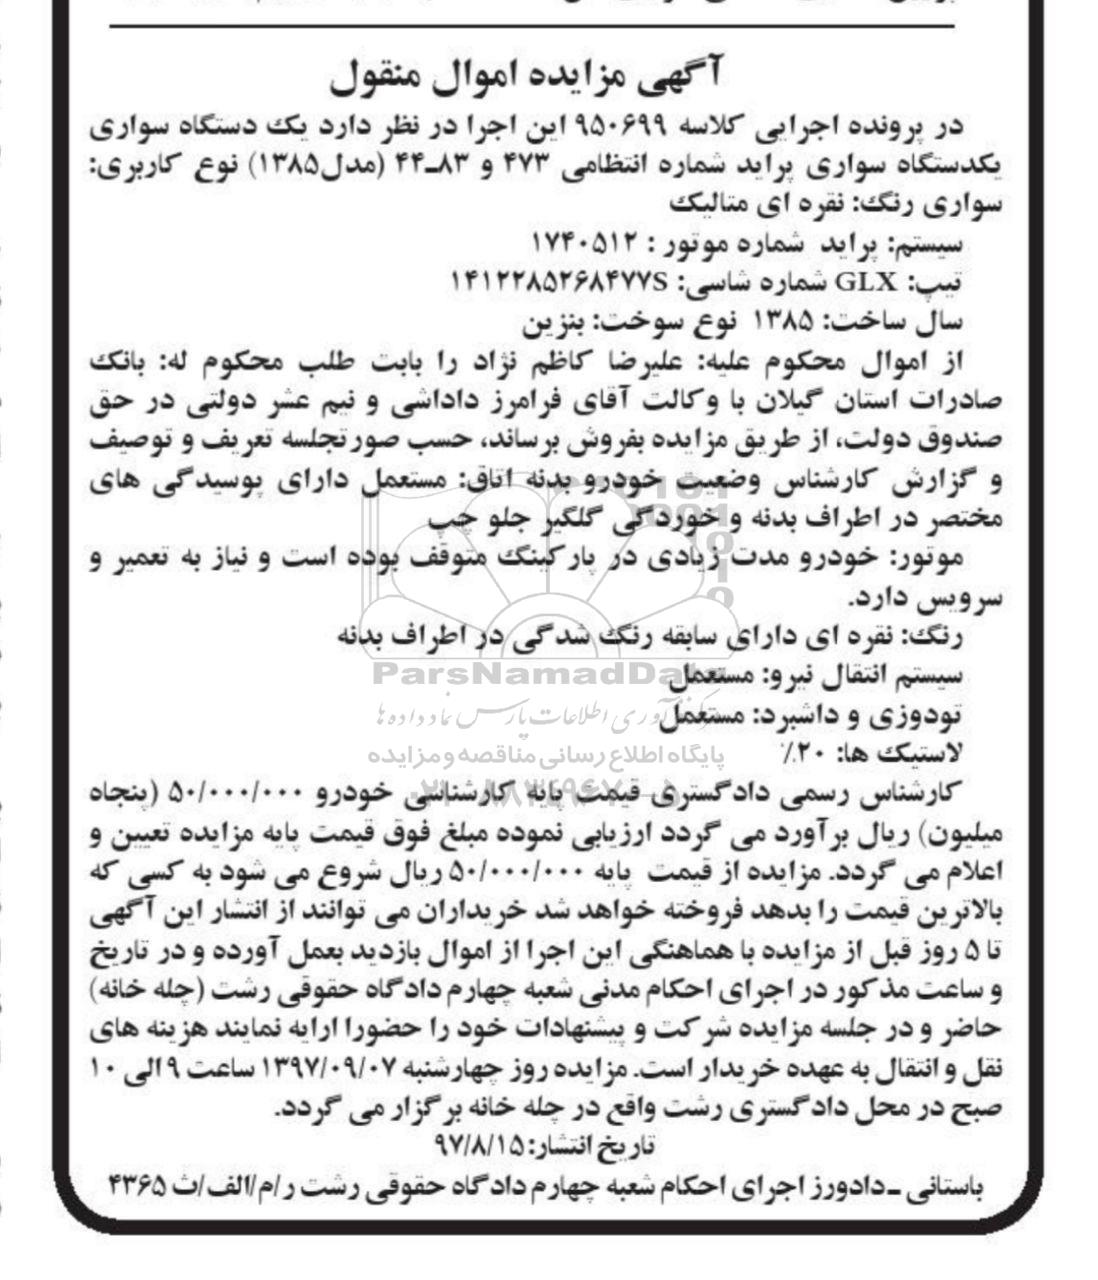 آگهی مزایده اموال منقول
در پرونده اجرایی کلاسه ۹۵۰۶۹۹ این اجرا در نظر دارد یک دستگاه سواری
یکدستگاه سواری پراید شماره انتظامی ۴۷۳ و ۸۳ـ۴۴ (مدل۱۳۸۵) نوع کاربری:
سواری رنگ: نقره ای متالیک
سیستم: پراید شماره موتور : ۱۷۴۰۵۱۲
تیپ: GLX شماره شاسی: ۱۴۱۲۲۸۵۲۶۸۴۷۷S
سال ساخت: ۱۳۸۵ نوع سوخت: بنزین
از اموال محکوم علیه: علیرضا کاظم نژاد را بابت طلب محکوم له: بانک
صادرات استان گیلان با وکالت آقای فرامرز داداشی و نیم عشر دولتی در حق
صندوق دولت، از طریق مزایده بفروش برساند، حسب صورتجلسه تعریف و توصیف
و گزارش کارشناس وضعیت خودرو بدنه اتاق: مستعمل دارای پوسیدگی های
مختصر در اطراف بدنه و خوردگی گلگیر جلو چپ
موتور: خودرو مدت زیادی در پارکینگ متوقف بوده است و نیاز به تعمیر و
سرویس دارد.
رنگ: نقره ای دارای سابقه رنگ شدگی در اطراف بدنه
ParsNamadData
سیستم انتقال نیرو: مستعمل
تودوزی و داشبرد: مستعمل
مرکز فرآوری اطلاعات پارس نماد داده ها
لاستیک ها: ۲۰٪
پایگاه اطلاع رسانی مناقصه و مزایده
کارشناس رسمی دادگستری قیمت پایه کارشناسی خودرو ۵۰/۰۰۰/۰۰۰ (پنجاه
میلیون) ریال برآورد می گردد ارزیابی نموده مبلغ فوق قیمت پایه مزایده تعیین و
اعلام می گردد. مزایده از قیمت پایه ۵۰/۰۰۰/۰۰۰ ریال شروع می شود به کسی که
بالاترین قیمت را بدهد فروخته خواهد شد خریداران می توانند از انتشار این آگهی
تا ۵ روز قبل از مزایده با هماهنگی این اجرا از اموال بازدید بعمل آورده و در تاریخ
و ساعت مذکور در اجرای احکام مدنی شعبه چهارم دادگاه حقوقی رشت (چله خانه)
حاضر و در جلسه مزایده شرکت و پیشنهادات خود را حضورا ارایه نمایند هزینه های
نقل و انتقال به عهده خریدار است. مزایده روز چهارشنبه ۱۳۹۷/۰۹/۰۷ ساعت ۹ الی ۱۰
صبح در محل دادگستری رشت واقع در چله خانه برگزار می گردد.
تاریخ انتشار: ۹۷/۸/۱۵
باستانی ـ دادورز اجرای احکام شعبه چهارم دادگاه حقوقی رشت ر/م/الف/ث ۴۳۶۵